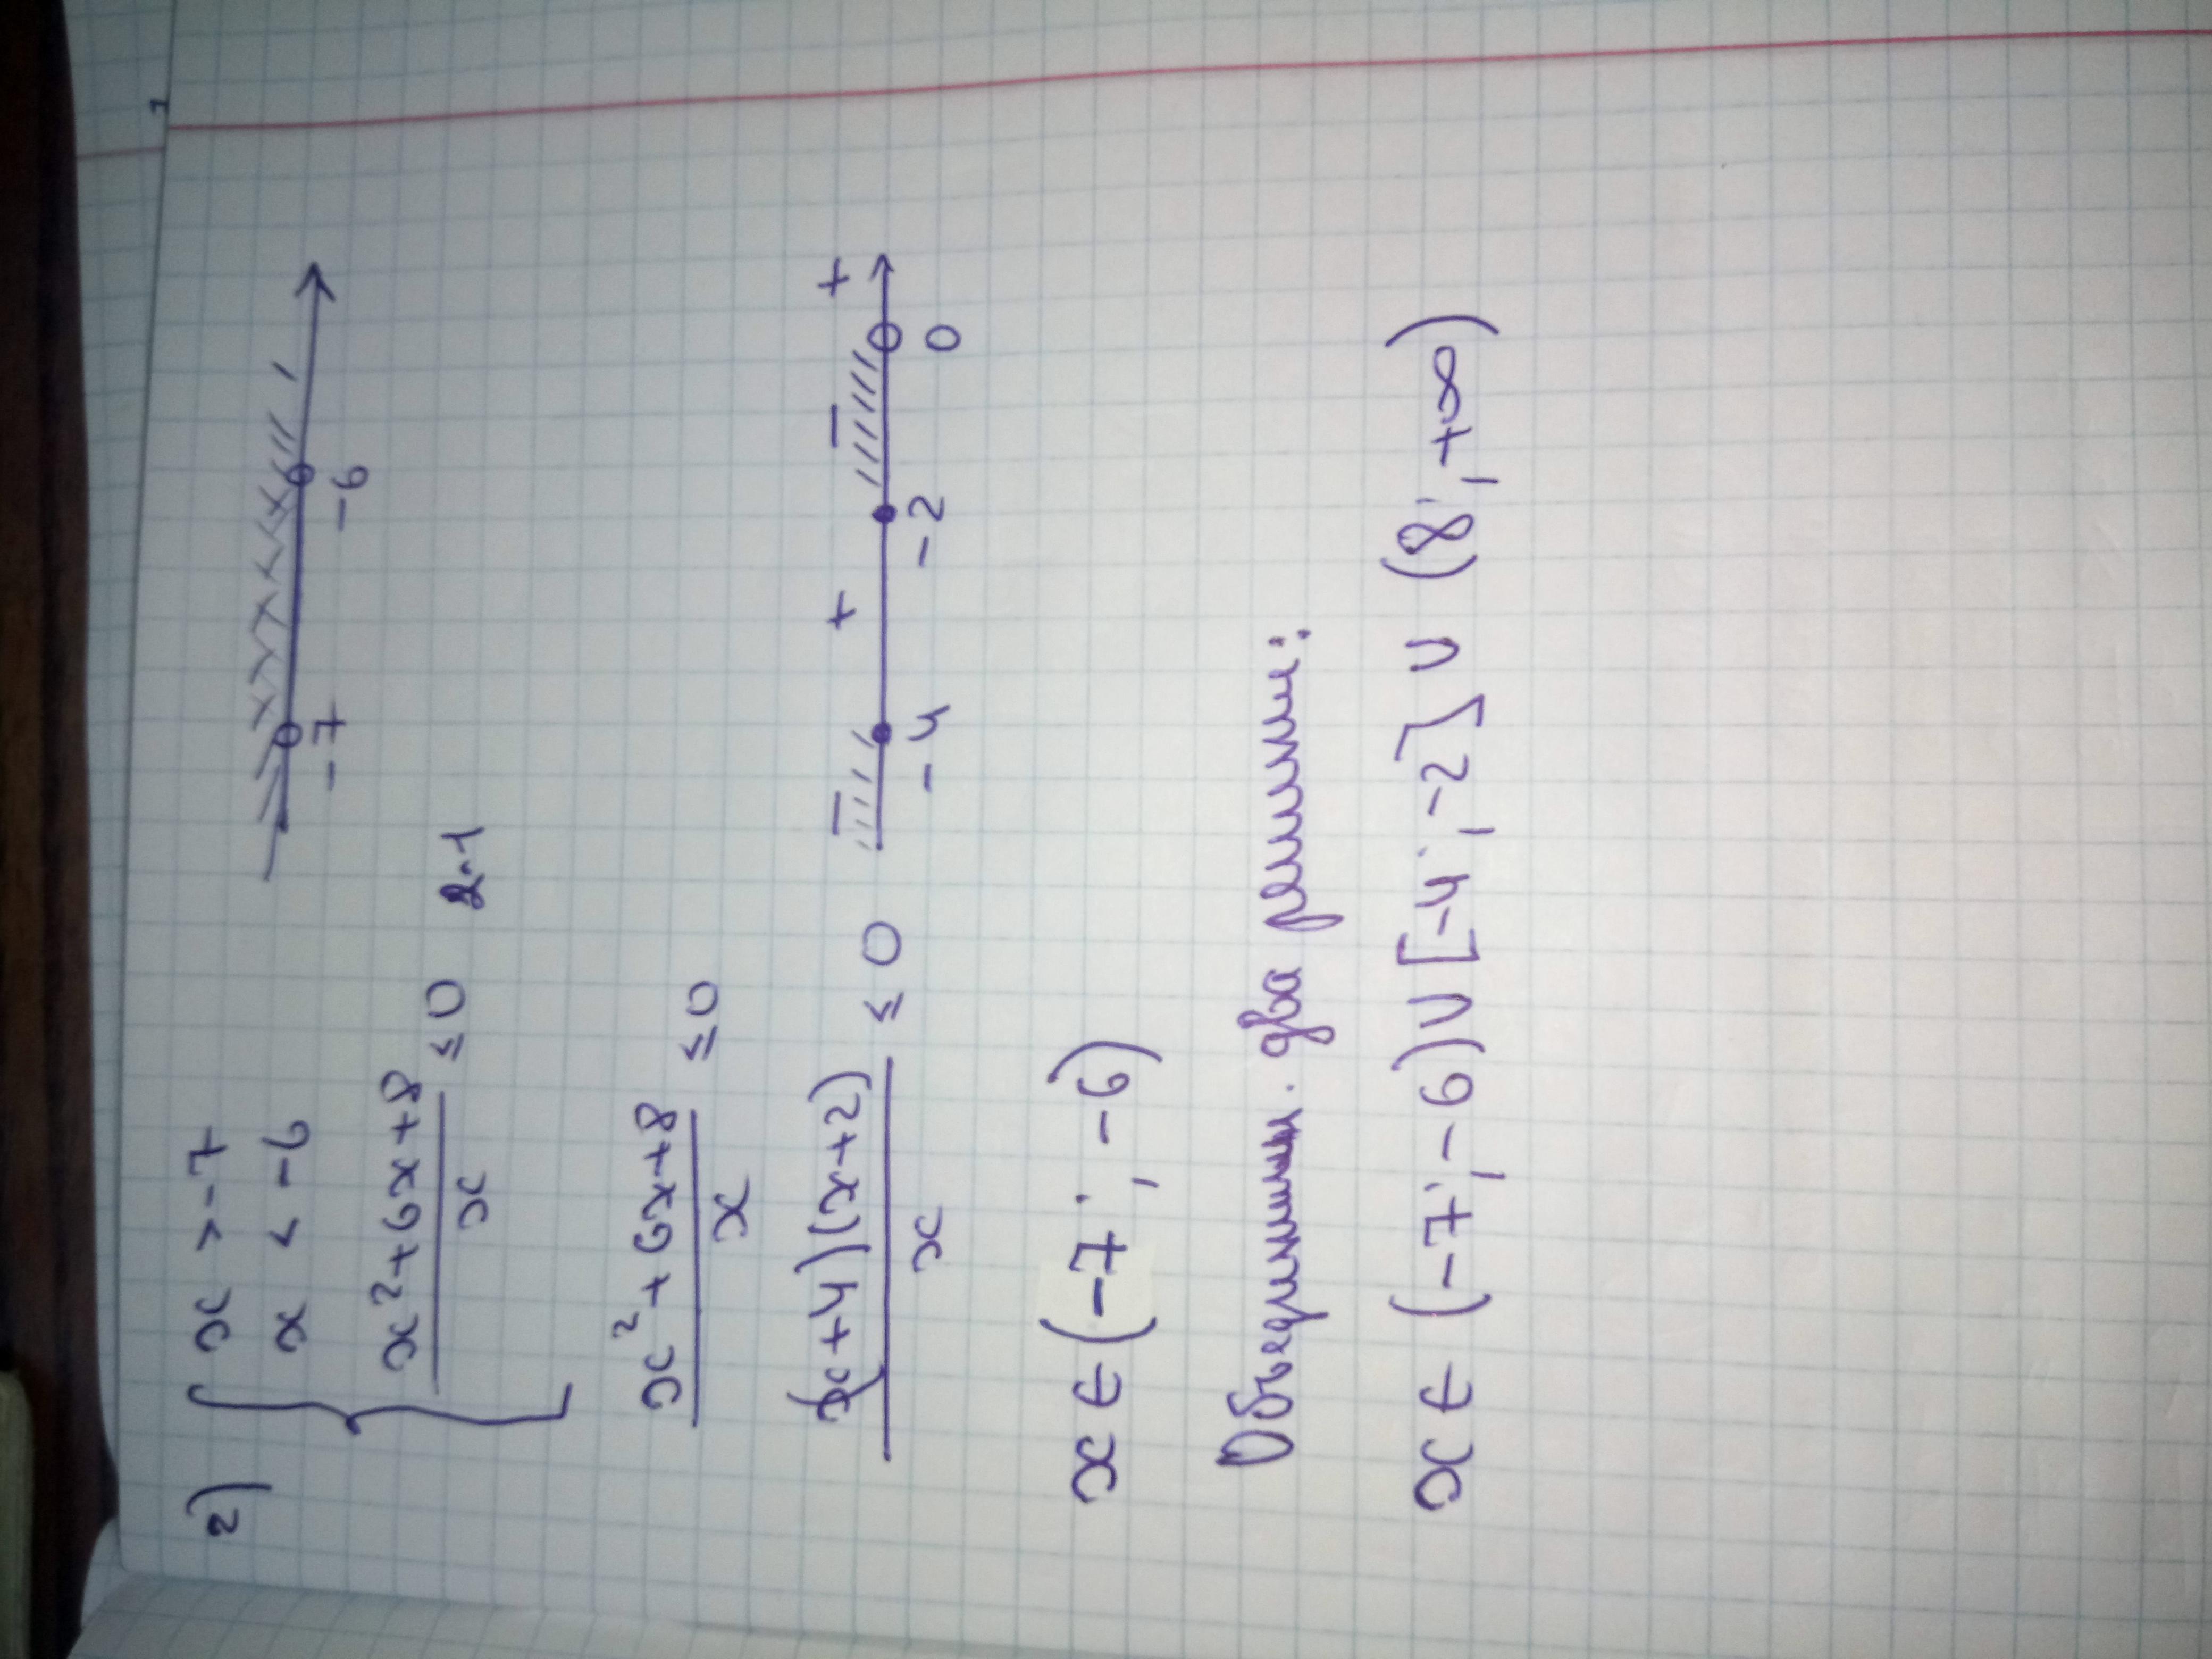 2) { x > -7
x < -6
(x² + 6x + 8)/x ≤ 0 2.1
-7 -6
(x² + 6x + 8)/x ≤ 0
((x+4)(x+2))/x ≤ 0
- + - +
-4 -2 0
x ∈ (-7; -6)
Объединим. два решении:
x ∈ (-7; -6) ∪ [-4; -2] ∪ (8; +∞)